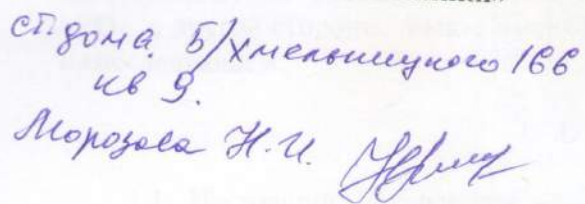 ст дома Б/Хмельницкого 166
кв 9.
Морозова Н.И.